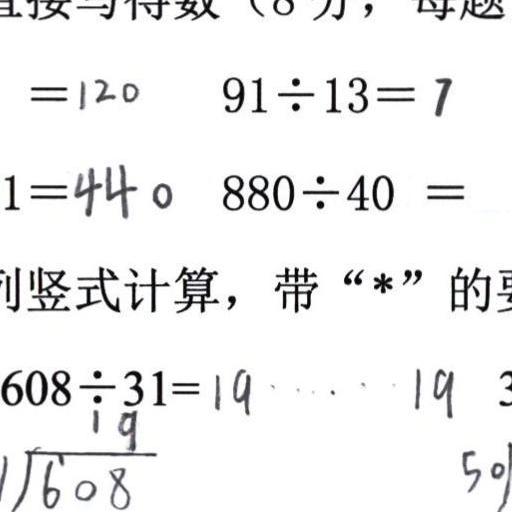 直接写得数（8分，每题
=120 91÷13=7
1=440 880÷40 =
列竖式计算，带“*”的要
608÷31=19……19 3
19
1)608 50)